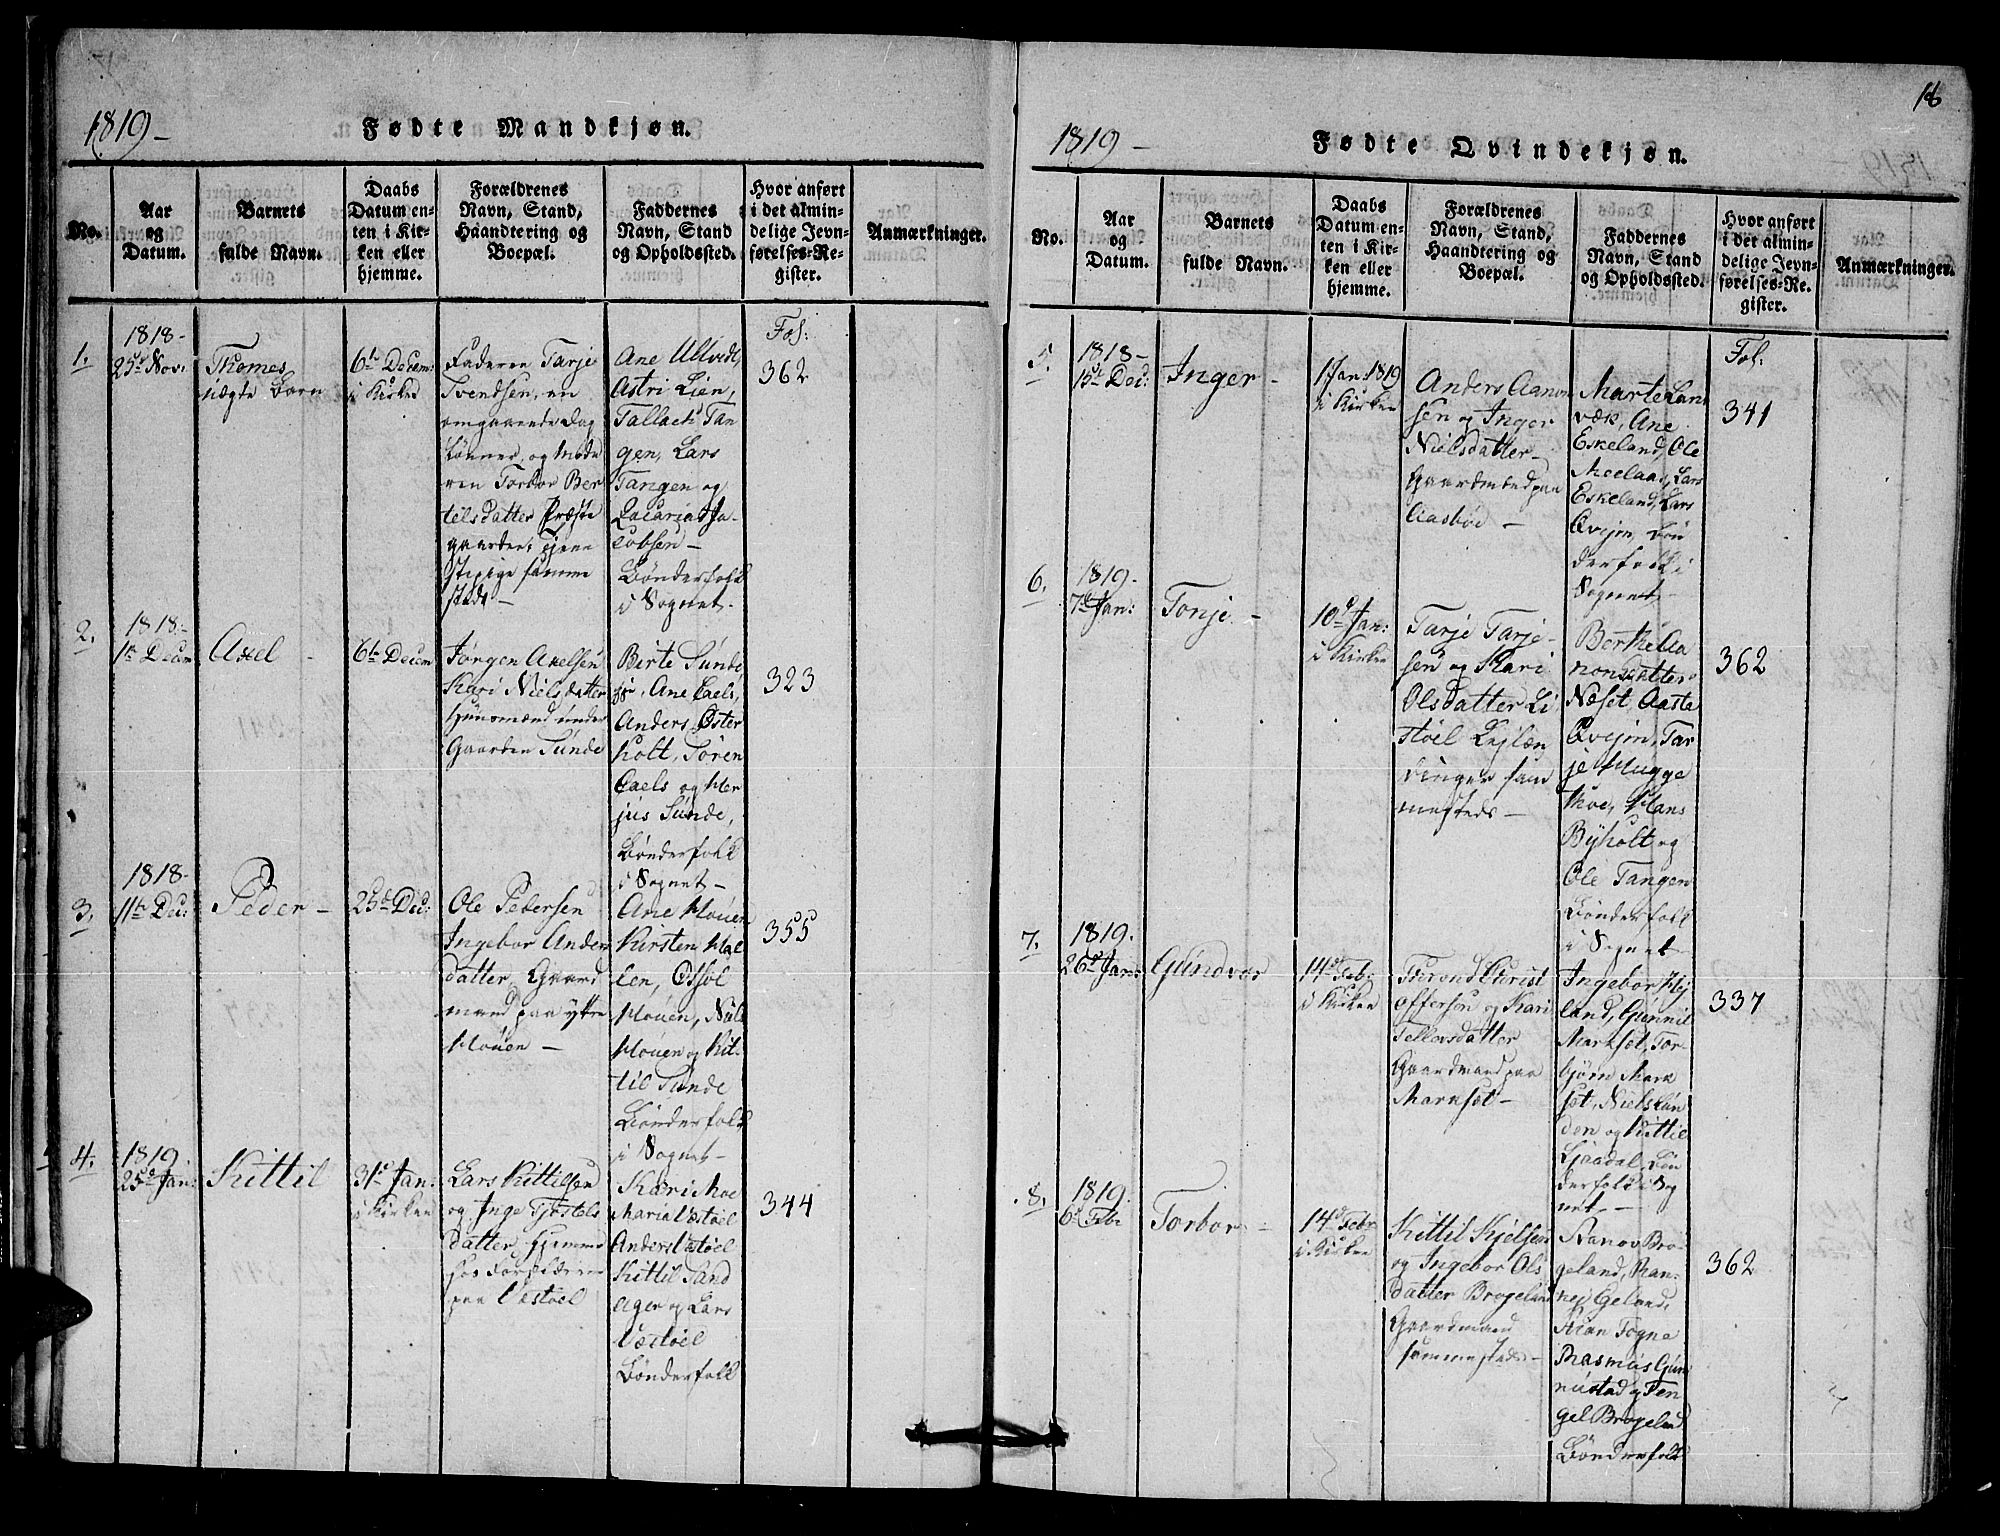 1819 –
Fødte Mandkjøn.
No.
Aar
og
Datum.
Barnets
fulde Navn.
Daabs
Datum en-
ten i Kir-
ken eller
hjemme.
Forældrenes
Navn, Stand,
Haandtering og
Boepæl.
Faddernes
Navn, Stand
og Opholdssted.
Hvor anført
i det almin-
delige Jevn-
førelses-Re-
gister.
Anmærkninger.
1.
1818-
25de Nov:
Thomes
uægte Barn
6te Decem:
i Kirken
Faderen Tarje
Svendsen, en
omgaaende Dag
Lønner, og Mode
ren Torbor Ber
telsdatter Præste
gaarden, tjene
stepige samme
steds –
Ane Ulltvedt,
Astri Lien,
Tallach Tan
gen, Lars
Tangen og
Zacarias Ja-
cobsen –
Bønderfolk
i Sognet.
Fol:
362
2.
1818.-
1te Decem
Axel
6te Decem
Jørgen Axelsen
Kari Nielsdatter
Huusmænd under
Gaarden Sunde
Birte Sunde,
Ane Caels,
Anders Øster
holt, Søren
Caels og Her
jus Sunde,
Bønderfolk
i Sognet –
323
3.
1818-
11te Dec:
Peder –
25de Dec:
Ole Pedersen
Ingebor Anders
datter, Gaard
mand paa yttre
Houen –
Ane Houen
Kirsten Hal
len, Ossøl
Houen, Niels
Houen og Kit
til Sunde
Bønderfolk
i Sognet –
355
4.
1819
25de Jan:
Kittil
31te Jan:
i Kirken
Lars Kittilsen
og Inge Tjøstels
datter, hjemme
hos Forældrene
paa Væstøel
Kari Moe
Maria Væstøel
Anders Væstøel
Kittil Sand
ager og Lars
Væstøel
Bønderfolk
344
18
1819 –
Fødte Qvindekjøn.
No.
Aar
og
Datum.
Barnets
fulde Navn.
Daabs
Datum en-
ten i Kir-
ken eller
hjemme.
Forældrenes
Navn, Stand,
Haandtering og
Boepæl.
Faddernes
Navn, Stand
og Opholdssted.
Hvor anført
i det almin-
delige Jevn-
førelses-Re-
gister.
Anmærkninger.
5.
1818-
15de Dec:
Inger –
1 Jan: 1819
i Kirken
Anders Aanon
sen og Inger
Nielsdatter –
Gaardmand paa
Aasbøe –
Marte Lan
væk, Ane
Eskeland, Ole
Meelaas, Lars
Eskeland, Lars
Qvejm, Bøn
derfolk i
Sognet –
Fol:
341
6.
1819.
7de Jan:
Tonje –
10de Jan:
i Kirken
Tarje Tarje-
sen og Kari
Olsdatter Li
støel Lejlæn
dinger sam
mesteds –
Berthe Aa
nonsdatter
Næset, Aaste
Qvejm, Tar
je Hugge
thve, Hans
Byholt og
Ole Tangen
Bønderfolk
i Sognet
362
7.
1819.
26de Jan:
Gundvor
14de Feb:
i Kirken
Torond Christ
offersøn og Kari
Tellevsdatter
Gaardmand paa
Markset –
Ingebor Hej
land, Gunnil
Markset, Tor-
bjørn Mark
set, Niels Lun
den og Kittil
Ljaadal, Bøn
derfolk i Sog
net. –
337
8.
1819.
6te Feb:
Torbor –
14de Feb:
i Kirken
Kittil Kjelsen
og Ingebor Ols
datter Brogeland
Gaardmand
sammesteds –
Aanov Bro-
geland, Ran-
nej Geland,
Aian Togne
Rasmus Gun
nustad og Ten
gel Brogeland
Bønderfolk
362